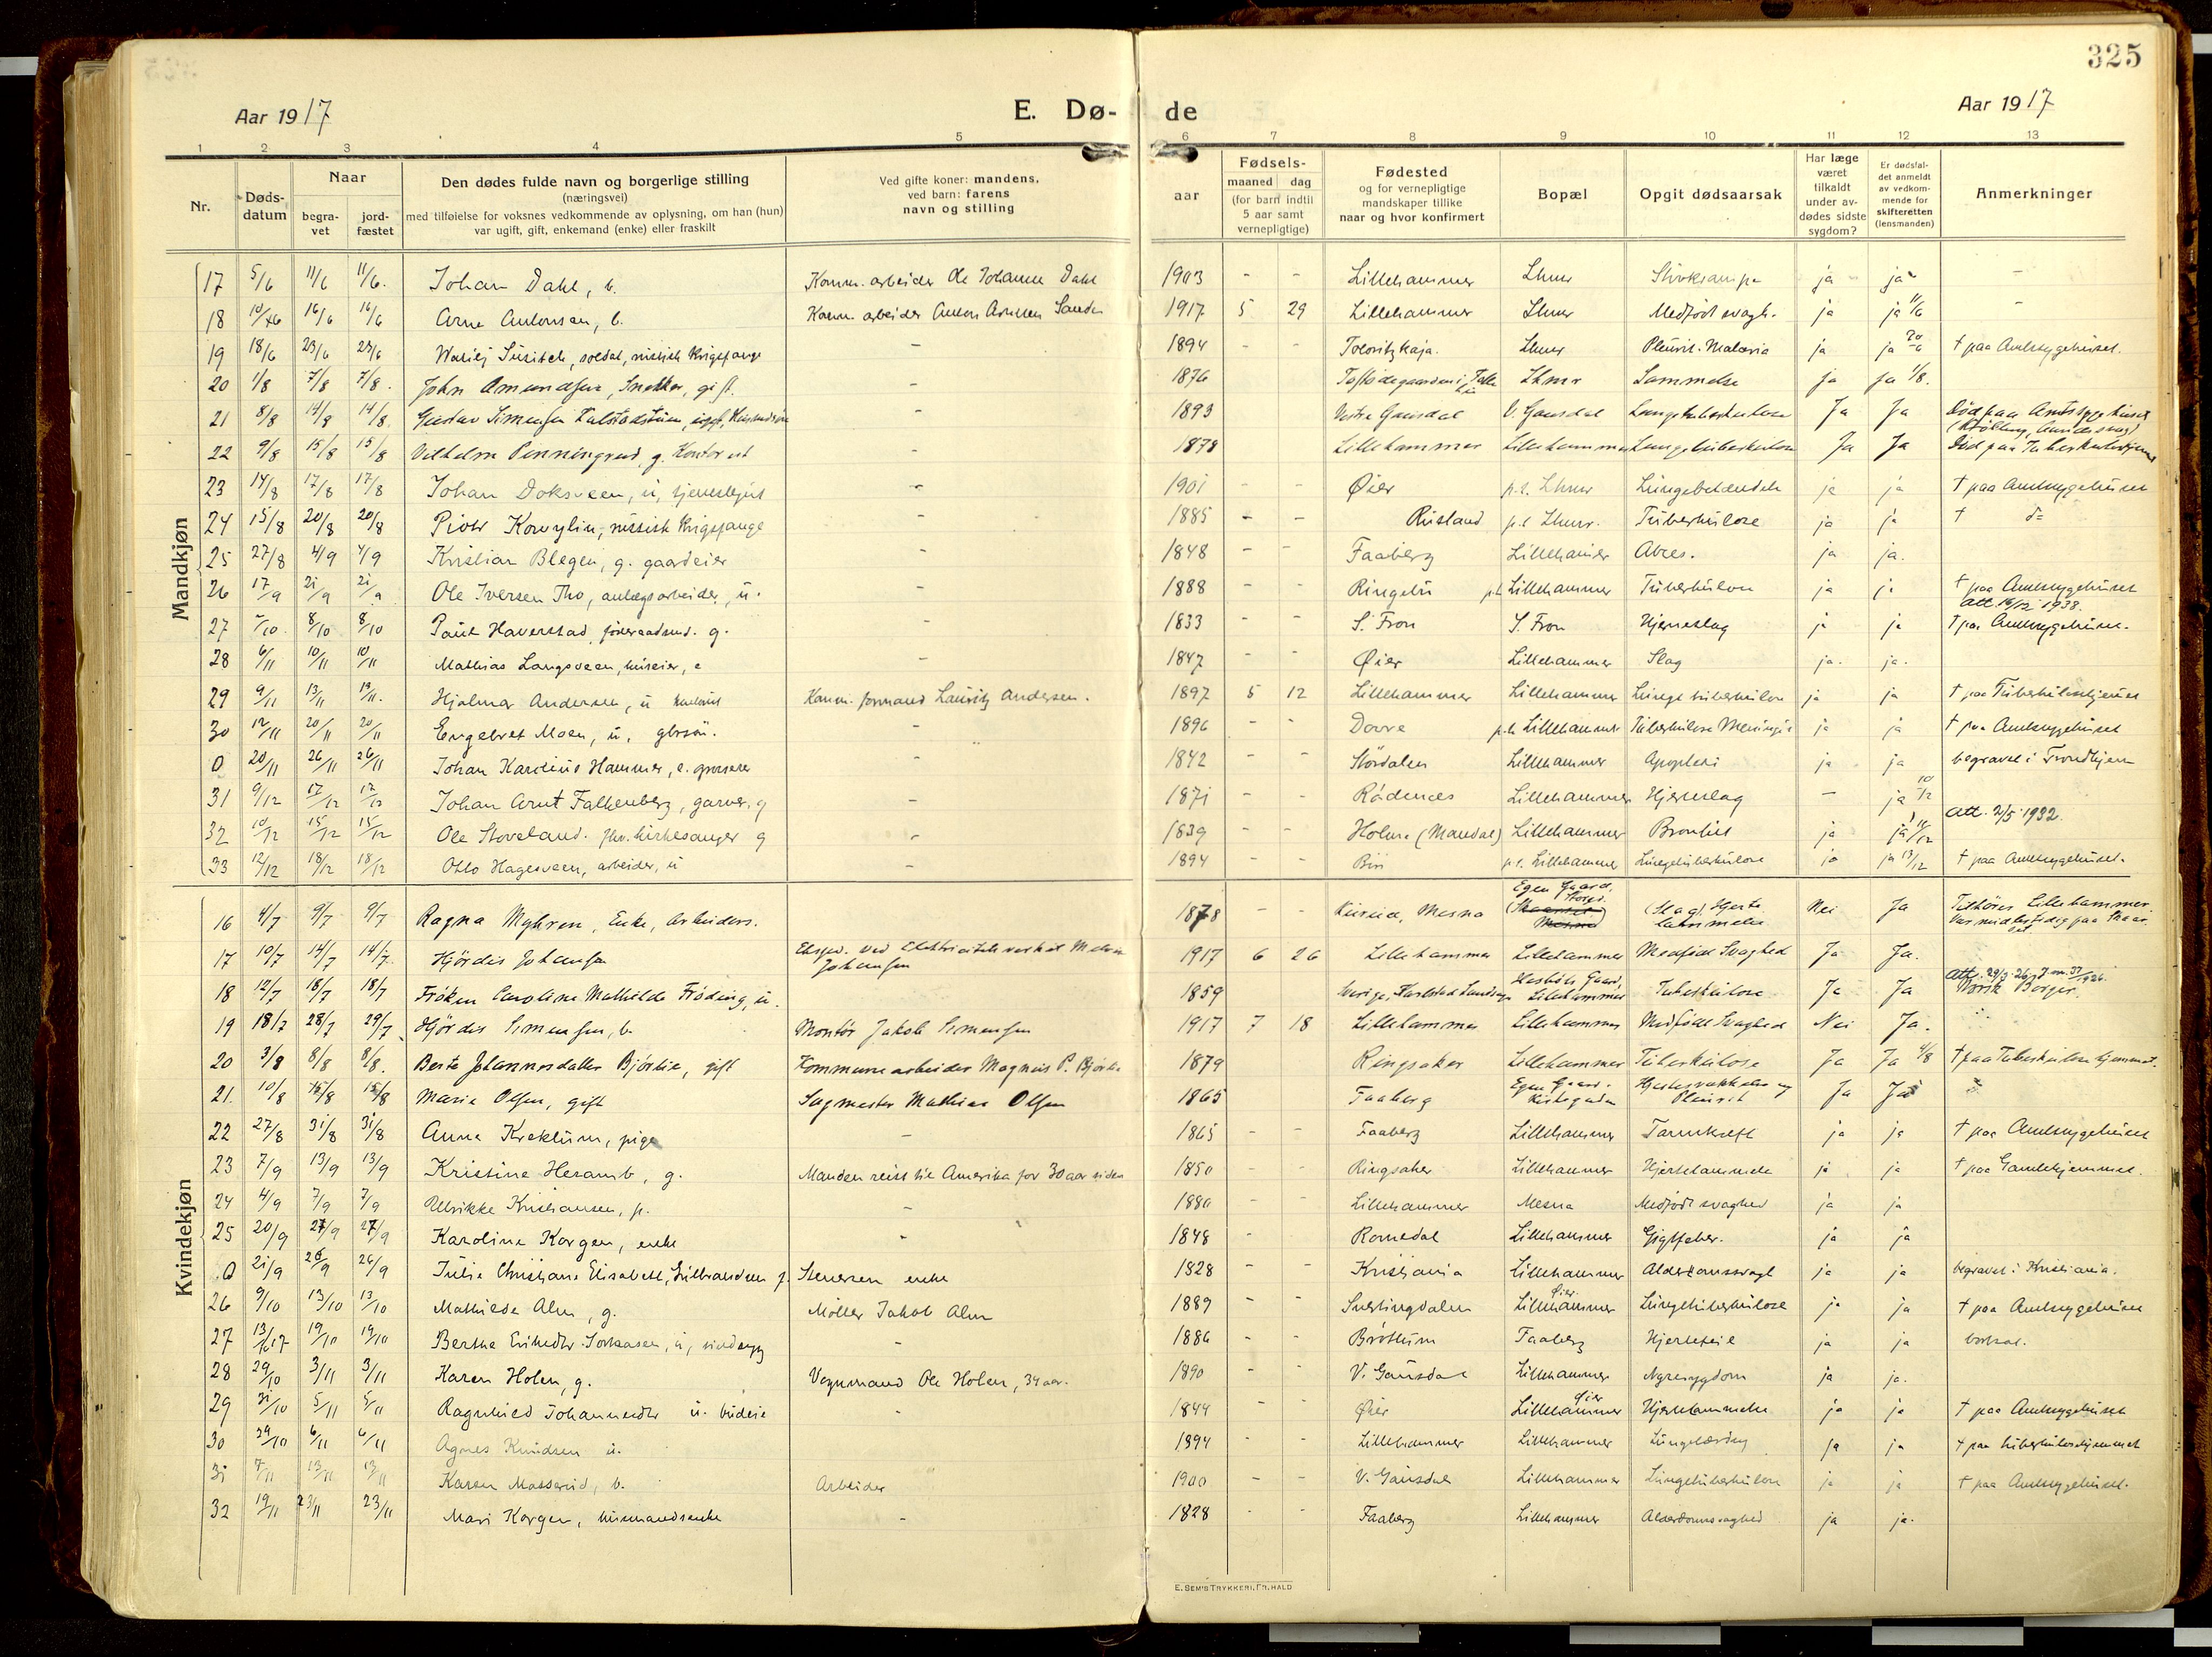 325
Aar 1917
E. Dø-
de
Aar 1917
1 2 3 4 5 6 7 8 9 10 11 12 13
Nr.
Døds-
datum
Naar
begra-
vet
jord-
fæstet
Den dødes fulde navn og borgerlige stilling
(næringsvei)
med tilføielse for voksnes vedkommende av oplysning, om han (hun)
var ugift, gift, enkemand (enke) eller fraskilt
Ved gifte koner: mandens,
ved barn: farens
navn og stilling
aar
Fødsels-
maaned dag
(for barn indtil
5 aar samt
vernepligtige)
Fødested
og for vernepligtige
mandskaper tillike
naar og hvor konfirmert
Bopæl
Opgit dødsaarsak
Har læge
været
tilkaldt
under av-
dødes sidste
sygdom?
Er dødsfal-
det anmeldt
av vedkom-
mende for
skifteretten
(lensmanden)
Anmerkninger
Mandkjøn
17 5/6 11/6 11/6. Johan Dahl, b. Komm. arbeider Ole Johannes Dahl 1903 - - Lillehammer Lhmr ja ja -
18 16/6 16/6 Arne Antonsen, b. Komm. arbeider Anton 1917 5 29 Lillehammer Lhmr Medfødt svagh. ja ja 11/6 -
19 18/6 23/6 23/6 soldat, russisk krigsfange - 1894 - - Lhmr Pleurit. Malaria ja ja 20/6 † paa Amtssygehuset.
20 1/8 7/8 7/8. John Amundsen, Snekker, gift. - 1876 Lhmr ja ja 1/8.
21 8/8 14/8 14/8 Gustav Simensen - 1893 Vestre Gausdal V. Gausdal Lungetuberkulose Ja Ja Død paa Amtssygehuset
22 9/8 15/8 15/8 Vilhelm Pinningrud, g. Kontorist - 1878 Lillehammer Lillehammer Lungetuberkulose Ja Ja Død paa Tuberkulosehjemmet
23 14/8 17/8 17/8 Johan Doksveen, u, tjenestegut - 1901 - - Øier p.t. Lhmr Lungebetændelse ja ja † paa Amtssygehuset
24 15/8 20/8 20/8 Piotr Kowylin, russisk krigsfange - 1885 - - Rusland p.t Lhmr. Tuberkulose ja ja † do
25 27/8 4/9 4/9 Kristian Blegen, g. gaardeier - 1848 - - Faaberg Lillehammer Abces. ja ja.
26 17/9 21/9 21/9 Ole Iversen Tho, anlægsarbeider, u. - 1888 - - Ringebu p.t. Lillehammer Tuberkulose ja ja † paa Amtssygehuset
Att. 14/12 1938.
27 /10. 8/10 8/10 Paul Haverstad, g. - 1833 - - S. Fron S. Fron Hjerneslag ja ja † paa Amtssygehuset.
28 6/11 10/11 10/11 Mathias Langsveen, huseier, e - 1847 - - Øier Lillehammer Slag ja. ja.
29 9/11 13/11 13/11. Hjalmar Andersen, u Komm. formand Lauritz Andersen. 1897 5 12 Lillehammer Lillehammer Lungetuberkulose ja ja † paa Tuberkulosehjemmet
30 12/11 20/11 20/11 Engebret Moen, u, gbrsøn. - 1896 - - Dovre p.t. Lillehammer Tuberkulose Meningit ja ja † paa Amtssygehuset
0 20/11 26/11 26/11 Johan Karelius Hammer, e. grosserer - 1842 - - Størdalen Lillehammer Apopleksi ja ja begravet i Trondhjem
31 9/12 17/12 17/12 Johan Arnt Falkenberg, garver, g - 1871 - - Rødenes Lillehammer Hjerneslag - ja 10/12
32 10/12 15/12 15/12 Ole Stoveland. fhv. kirkesanger g - 1839 - - Holme (Mandal) Lillehammer Bronkit ja ja 11/12 Att. 2/5 1932.
33 12/12 18/12 18/12 Otto Hagesveen, arbeider, u - 1894 - - Biri p.t. Lillehammer Lungetuberkulose ja ja 13/12 † paa Amtssygehuset.
Kvindekjøn
16 4/7 9/7 9/7 Ragna Myhren, Enke, Arbeiders. 1878 - - Mesna Egen Gaard, (Slag). Hjerte Nei Ja Tilhører Lillehammer
17 10/7 14/7 14/7. Hjørdis Johansen Ekspd. ved Elektricitetsverket
Johansen 1917 6 26 Lillehammer Lillehammer Medfødt Svaghed Ja Ja.
18 12/7 18/7 18/7 Frøken Caroline Mathilde Frøding, u. 1859 Sverige, Lillehammer Tuberkulose Ja Ja Norsk Borger.
19 18/7 28/7 29/7 Hjørdis Simensen, b. Montør Jakob Simensen 1917 7 18 Lillehammer Lillehammer Medfødt Svaghed Nei Ja.
20 3/8 8/8 8/8. Berte Johannesdatter Bjørlie, gift Kommunearbeider Magnus P. Bjørlie 1879 Ringsaker Lillehammer Tuberkulose Ja Ja 4/8 † paa Tuberkulosehjemmet.
21. 10/8 15/8 15/8 Marie Olsen, gift Sagmester Mathias Olsen 1865 Faaberg Egen Gaard. og
Pleurit Ja Ja
22 27/8 31/8 31/8 Anna Kreklum, pige - 1865 - - Faaberg Lillehammer Tarmkræft ja ja † paa Amtssygehuset
23 7/9 13/9 13/9 Kristine Heramb, g. Manden reist til Amerika for 30 aar siden 1850 - - Ringsaker Lillehammer Hjertelammelse ja ja † paa Gamlehjemmet.
24 4/9 7/9 7/9 Ulrikke Kristiansen, p. - 1880 - - Lillehammer Mesna Medfødt svaghed ja ja
25 20/9 27/9 27/9 Karoline Korgen, enke - 1848 - Romedal Lillehammer Gigtfeber. ja ja
0 21/9 26/9 26/9 Julie Christiane Elisabeth, Stenersen enke 1828 - - Kristiania Lillehammer Alderdomssvagh ja ja begravet i Kristiania.
26 9/10 13/10 13/10 Mathilde Alm, g. Møller Jakob Alm 1889 - - Snertingdalen Øier.
Lillehammer Lungetuberkulose ja ja † paa Amtssygehuset
27 13/10 17 19/10 19/10 Berthe u, - 1886 - - Brøttum Faaberg Hjertefeil ja ja bortsat.
28 29/10 3/11 3/11 Karen Holen, g. Vognmand Ole Holen, 34 aar. 1890 - - V. Gausdal Lillehammer Nyresygdom ja ja.
29 31/10 5/11 5/11 Ragnhild Johannesdtr u. budeie - 1844 Øier Øier
Lillehammer Hjertelammelse ja ja † paa Amtssygehuset
30 29/10 6/11 6/11 Agnes Knudsen u. 1894 - - Lillehammer Lillehammer Lungetæring ja ja † paa tuberkulosehjemmet
31 7/11 13/11 13/11 Karen b. Arbeider 1900 - - V. Gausdal Lillehammer Lungetuberkulose ja ja † paa Amtssygehuset.
32 19/11 23/11 23/11 Mari Korgen, husmandsenke - 1828 - - Faaberg Lillehammer Alderdomssvaghed ja ja.
E. SEM'S TRYKKERI, FR. HALD